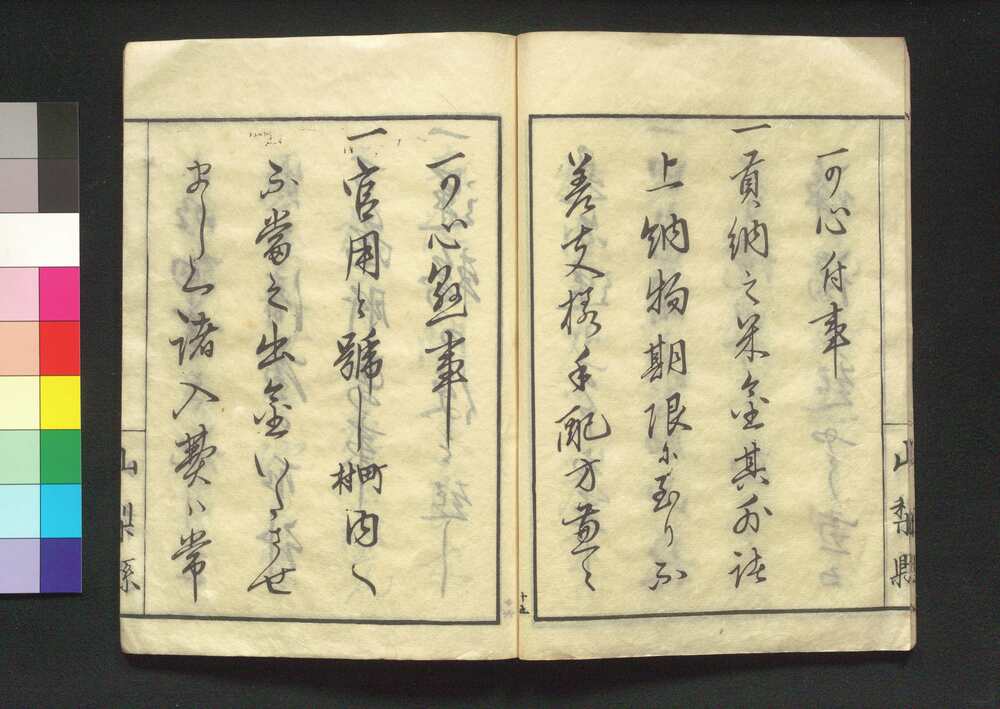 可心付事
一貢納之米金其外諸
上納物期限ニ至り不
差支様手配方兼而
可心懸事
一官用と號し町村内へ
不當之出金いたさせ
ましく諸入費ハ常
山梨縣
山梨縣
十五